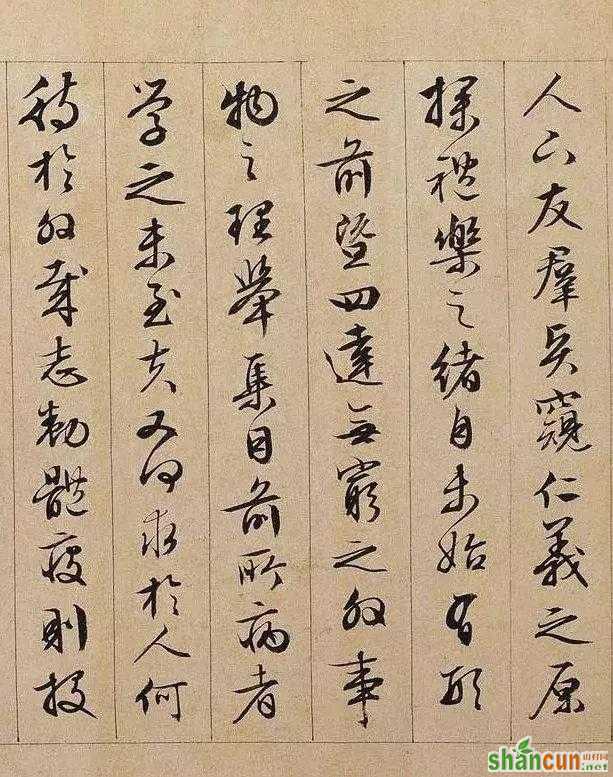 人下友羣賢窺仁義之原
探禮樂之緒自未始有形
之前暨四達無窮之外事
物之理舉集目前所病者
學之未至夫又何求於人何
待於外哉志勌體疲則投
shancun
.net